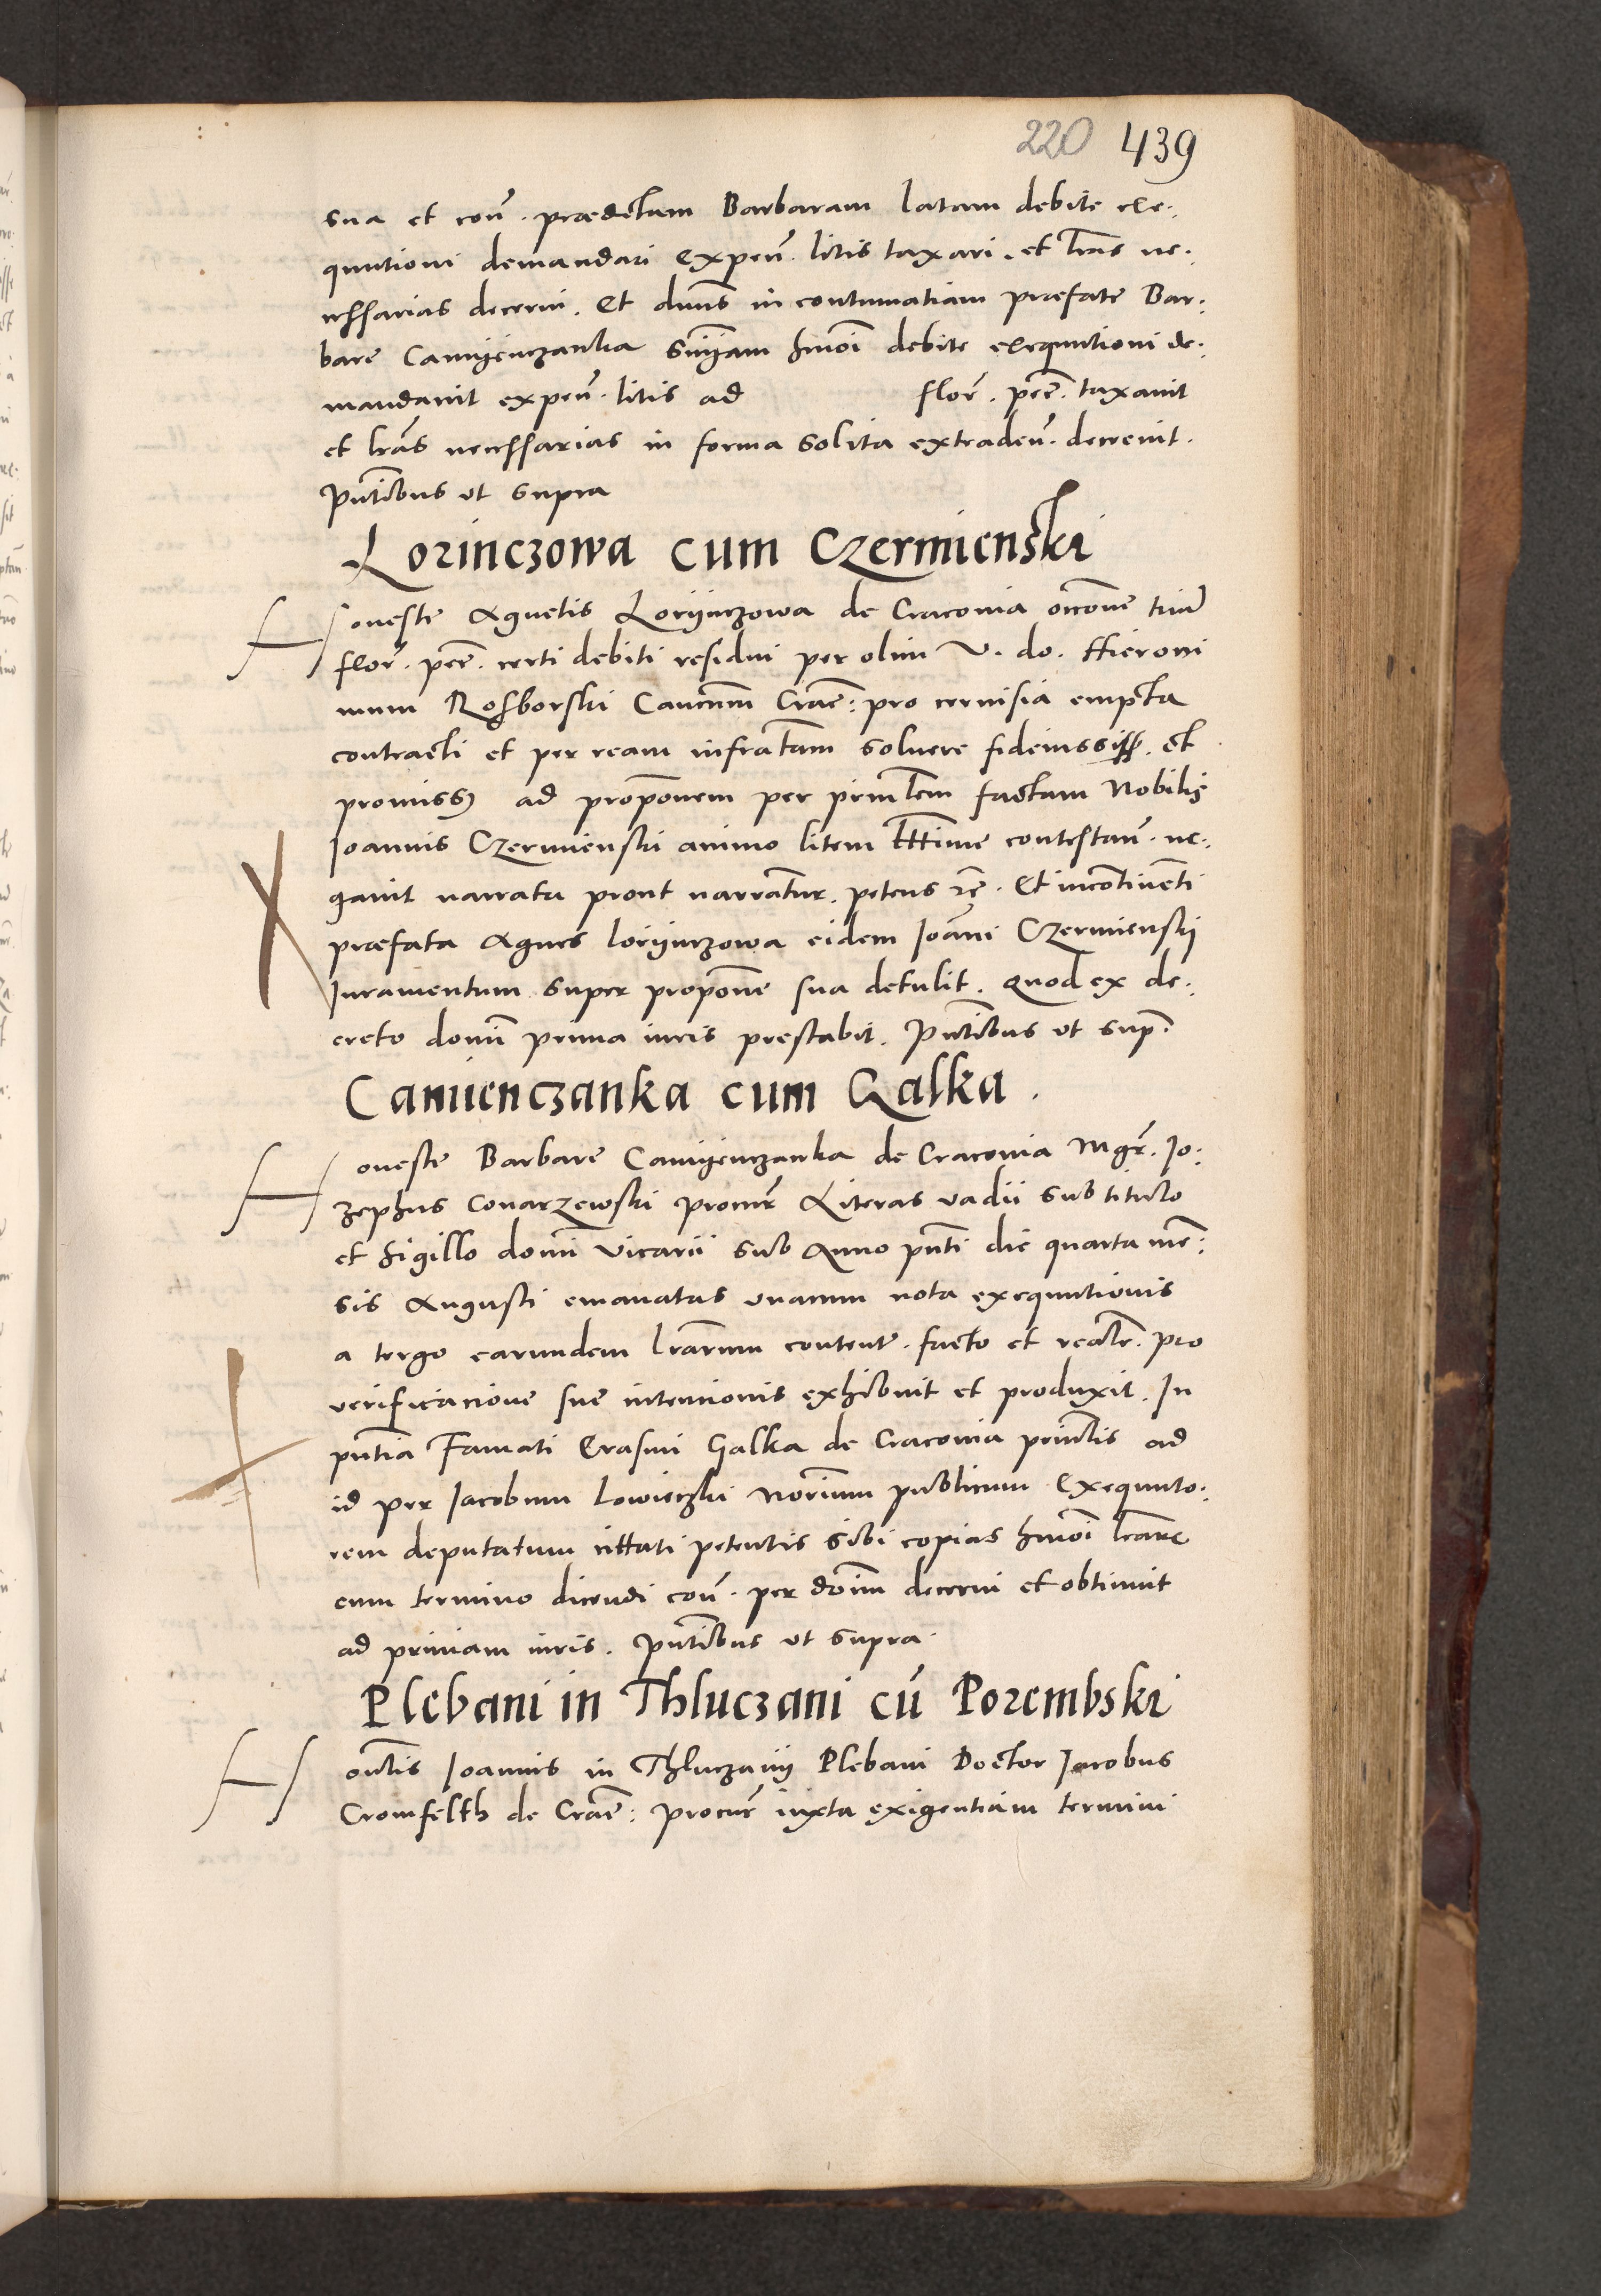 220 439
sua et con̄. praedctam Barbaram latam debite exe.
qautioni demandari Expen̄. litis taxari. et lr̄as ne.
cessarias decerni. Et dnūs in contumatiam praefate Bar.
bare Camijenczanka snīam hmōi debite exequutioni de.
mandauit expen̄. litis ad flor̄. pec̄. taxauit
et lrās necessarias in forma solita extraden̄. decreuit.
Pntībus ut supra
Lorinczowa cum Czermienski
Honeste Agnetis Lorijnczowa de Cracouia occōne triū
flor̄. pec̄. certi debiti residui per olim V. do. Hieroni
mum Rosborski Canēum Crac̄: pro ceruisia empta
contracti et per ream infratām soluere fideiussi et
promiss ad propōnem per prinlem factam Nobilis
Joannis Czermienski animo litem lttīme contestan̄. ne.
gauit narrata prout narrantur. petens rē. Et incontinēti
praefata Agnes lorijnczowa eidem Joāni Czermienskij
Juramentum super propōne sua detulit. Quod ex de.
creto domī prima iuris prestabit. Pntībus ut sup.
Camienczanka cum Galka.
Honeste Barbare Camijenczanka de Cracouia Mgr̄. Jo.
zephus Conarzewski procur̄ Literas vadii sub titulo
et sigillo domī Vicarii sub Anno pn̄ti die quarta mē:
sis Augusti emanatas vnacum nota exequutionis
a tergo earundem lrārum content. facto et realr̄. pro
verificacione sue intencionis exhibuit et produxit. In
pn̄tia Famati Erasmi Galka de Cracouia prinlis ad
id per Jacobum Lowieczki Norīum publicum Exequuto.
rem deputatum cittati petentis sibi copias hmōi lrārū
cum termino dicendi con̄. per dom̄ decerni et obtinuit
ad primam iuris. Pntībus ut supra.
Plebani in Thluczani cū Porembski
Honlis Joannis in Thluczanij Plebani Doctor Jacobus
Cromfelth de Crac̄: procur̄ iuxta exigentiam termini